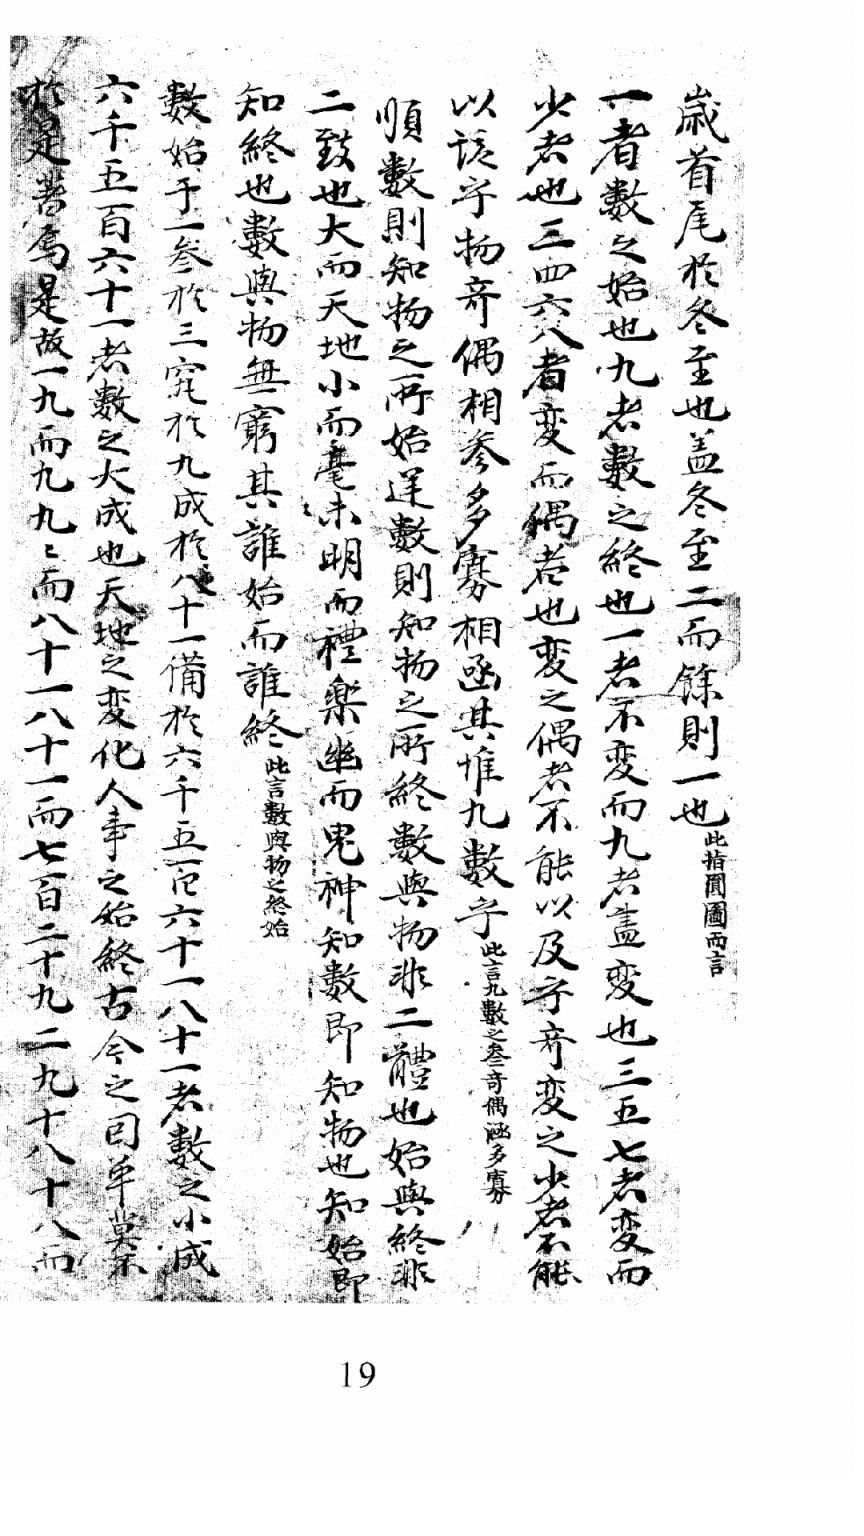 歲首尾於冬至也盖冬至二而餘則一也此指圎圖而言
一者數之始也九者數之終也一者不变而九者盖变也三五七者变而
少者也三四六八者变而偶者也变之偶者不能以及乎奇变之少者不能
以該乎物奇偶相参多寡相函其惟九數乎此言九數之叁奇偶涵多寡
順數則知物之所始逆數則知物之所終數與物非二體也始與終非
二致也大而天地小而毫末明而禮樂幽而鬼神知數即知物也知始即
知終也數與物無窮其誰始而誰終此言數與物之終始
數始于一叄於三究於九成於八十一備於六千五百六十一八十一者數之小成
六千五百六十一者數之大成也天地之变化人事之始終古今之因革莫不
於是著焉是故一九而九九九〻而八十一八十一而七百二十九二九十八十八而
19